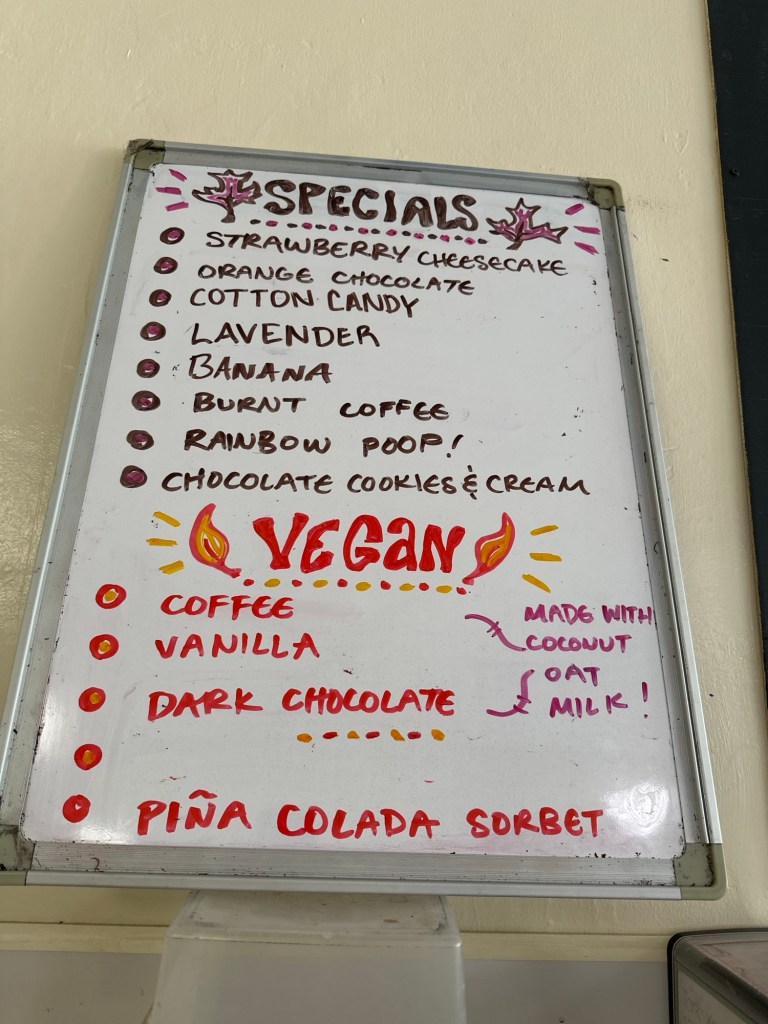 SPECIALS
STRAWBERRY CHEESECAKE
ORANGE CHOCOLATE
COTTON CANDY
LAVENDER
BANANA
BURNT COFFEE
RAINBOW POOP!
CHOCOLATE COOKIES & CREAM
VEGAN
COFFEE
VANILLA
DARK CHOCOLATE
MADE WITH
COCONUT
OAT
MILK!
PIÑA COLADA SORBET